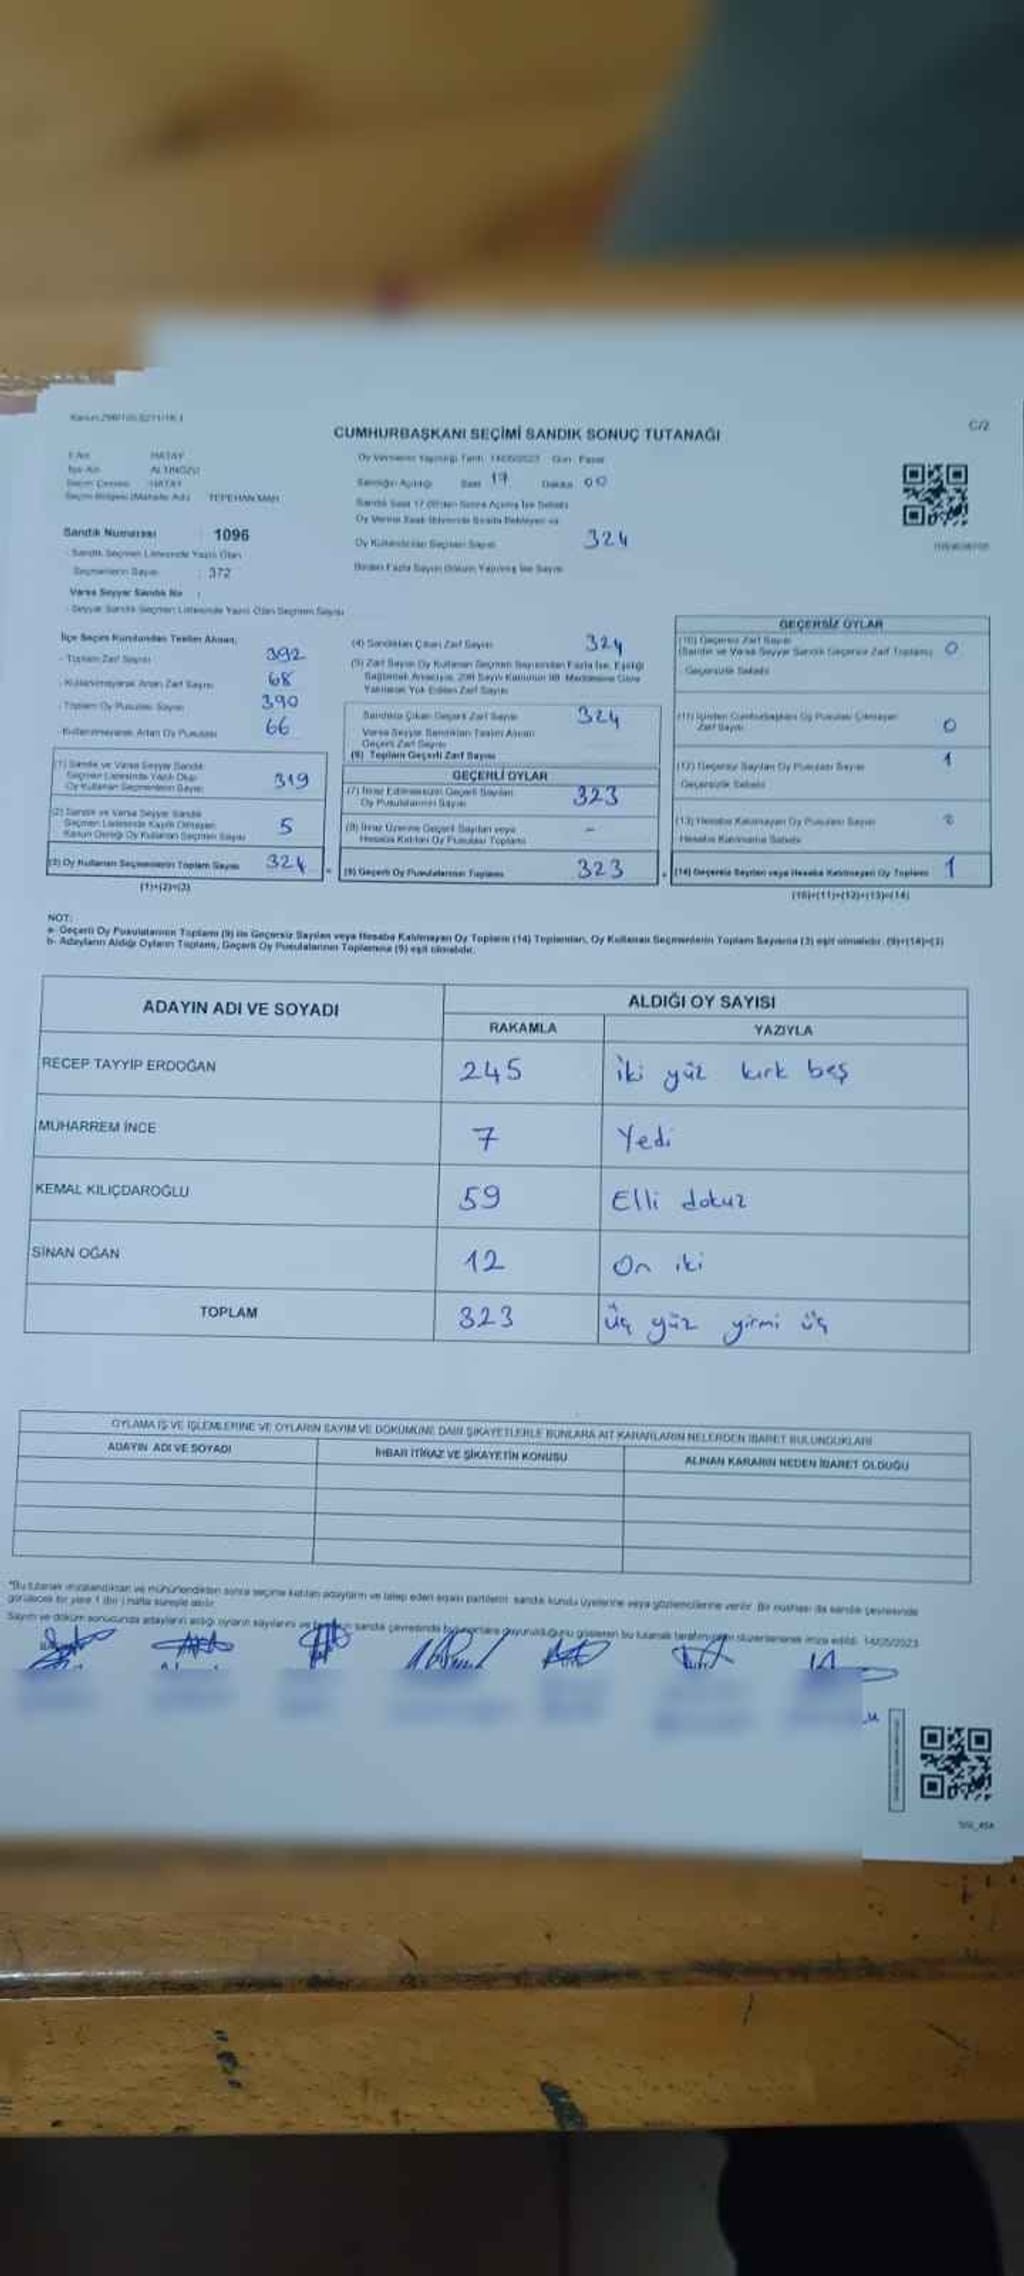 C/2
CUMHURBAŞKANI SEÇİMİ SANDIK SONUÇ TUTANAĞI
İl Adı HATAY
İlçe Adı ALTINÖZÜ
Seçim Çevresi HATAY
Seçim Bölgesi (Mahalle Adı) TEPEHAN MAH.
Oy Vermenin Yapıldığı Tarih: 14/05/2023 Gün: Pazar
Sandığın Açıldığı Saat 17 Dakika 00
Sandık Numarası : 1096
Sandık Seçmen Listesinde Yazılı Olan
Seçmenlerin Sayısı : 372
Varsa Seyyar Sandık No :
- Seyyar Sandık Seçmen Listesinde Yazılı Olan Seçmen Sayısı
Oy Kullandırılan Seçmen Sayısı 324
İlçe Seçim Kurulundan Teslim Alınan;
- Toplam Zarf Sayısı 392
- Kullanılmayarak Artan Zarf Sayısı 68
- Toplam Oy Pusulası Sayısı 390
- Kullanılmayarak Artan Oy Pusulası 66
(1) Sandık ve Varsa Seyyar Sandık
Seçmen Listesinde Yazılı Olup
Oy Kullanan Seçmenlerin Sayısı 319
(2) Sandık ve Varsa Seyyar Sandık
Seçmen Listesinde Kayıtlı Olmayan
Kanun Gereği Oy Kullanan Seçmen Sayısı 5
(3) Oy Kullanan Seçmenlerin Toplam Sayısı 324
(1)+(2)=(3)
(4) Sandıktan Çıkan Zarf Sayısı 324
(5) Zarf Sayısı Oy Kullanan Seçmen Sayısından Fazla İse, Eşitliği
Sağlamak Amacıyla, 298 Sayılı Kanunun 98. Maddesine Göre
Yakılarak Yok Edilen Zarf Sayısı
Sandıkta Çıkan Geçerli Zarf Sayısı 324
Varsa Seyyar Sandıktan Teslim Alınan
Geçerli Zarf Sayısı
(6) Toplam Geçerli Zarf Sayısı
GEÇERLİ OYLAR
(7) İtiraz Edilmeksizin Geçerli Sayılan
Oy Pusulalarının Sayısı 323
(8) İtiraz Üzerine Geçerli Sayılan veya
Hesaba Katılan Oy Pusulası Toplamı -
(9) Geçerli Oy Pusulalarının Toplamı 323
GEÇERSİZ OYLAR
(10) Geçersiz Zarf Sayısı
(Sandık ve Varsa Seyyar Sandık Geçersiz Zarf Toplamı) 0
Geçersizlik Sebebi
(11) İçinden Cumhurbaşkanı Oy Pusulası Çıkmayan
Zarf Sayısı 0
(12) Geçersiz Sayılan Oy Pusulası Sayısı 1
Geçersizlik Sebebi
(13) Hesaba Katılmayan Oy Pusulası Sayısı
Hesaba Katılmama Sebebi
(14) Geçersiz Sayılan veya Hesaba Katılmayan Oy Toplamı 1
(10)+(11)+(12)+(13)=(14)
NOT:
a- Geçerli Oy Pusulalarının Toplamı (9) ile Geçersiz Sayılan veya Hesaba Katılmayan Oy Toplamı (14) Toplamları, Oy Kullanan Seçmenlerin Toplam Sayısına (3) eşit olmalıdır. (9)+(14)=(3)
b- Adayların Aldığı Oyların Toplamı, Geçerli Oy Pusulalarının Toplamına (9) eşit olmalıdır.
ADAYIN ADI VE SOYADI
ALDIĞI OY SAYISI
RAKAMLA YAZIYLA
RECEP TAYYİP ERDOĞAN 245 iki yüz kırk beş
MUHARREM İNCE 7 Yedi
KEMAL KILIÇDAROĞLU 59 Elli dokuz
SİNAN OĞAN 12 On iki
TOPLAM 323 Üç yüz yirmi üç
OYLAMA İŞ VE İŞLEMLERİNE VE OYLARIN SAYIM VE DÖKÜMÜNE DAİR ŞİKAYETLERLE BUNLARA AİT KARARLARIN NELERDEN İBARET BULUNDUKLARI
ADAYIN ADI VE SOYADI İHBAR İTİRAZ VE ŞİKAYETİN KONUSU ALINAN KARARIN NEDEN İBARET OLDUĞU
*Bu tutanak imzalandıktan ve mühürlendikten sonra seçime katılan adayların ve talep eden siyasi partilerin sandık kurulu üyelerine veya gözlemcilerine verilir. Bir nüshası da sandık çevresinde
görülecek bir yere 1 (bir) hafta süreyle asılır.